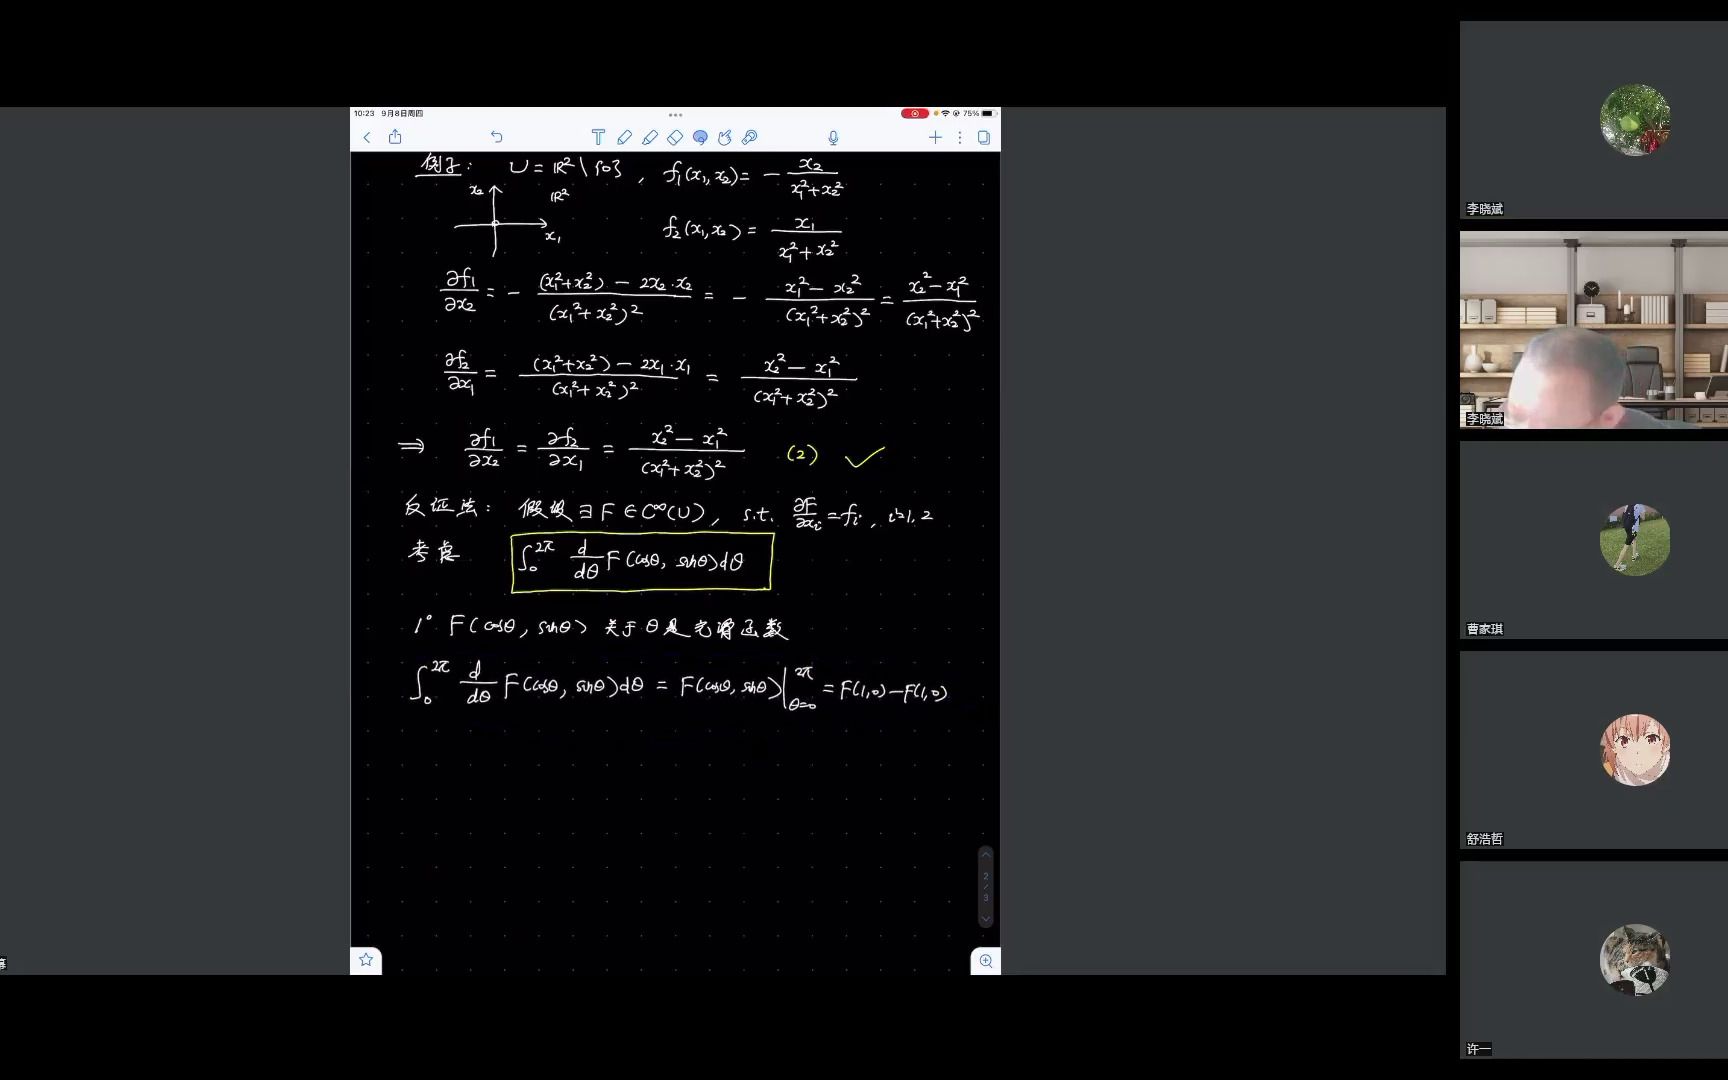 10:23 9月8日周四
75%
例子: U = ℝ² \ {0} , f₁(x₁, x₂) = - x₂ / (x₁² + x₂²)
x₂ ℝ²
x₁
f₂(x₁, x₂) = x₁ / (x₁² + x₂²)
∂f₁/∂x₂ = - ((x₁²+x₂²) - 2x₂·x₂) / (x₁²+x₂²)² = - (x₁² - x₂²) / (x₁²+x₂²)² = (x₂² - x₁²) / (x₁²+x₂²)²
∂f₂/∂x₁ = ((x₁²+x₂²) - 2x₁·x₁) / (x₁²+x₂²)² = (x₂² - x₁²) / (x₁²+x₂²)²
⇒ ∂f₁/∂x₂ = ∂f₂/∂x₁ = (x₂² - x₁²) / (x₁²+x₂²)² (2) ✓
反证法: 假设 ∃ F ∈ C^∞(U), s.t. ∂F/∂xᵢ = fᵢ, i=1, 2
考虑 ∫₀^{2π} d/dθ F(cosθ, sinθ)dθ
1° F(cosθ, sinθ) 关于 θ 是光滑函数
∫₀^{2π} d/dθ F(cosθ, sinθ)dθ = F(cosθ, sinθ)|_{θ=0}^{2π} = F(1,0) - F(1,0)
2
/
3
李晓斌
李晓斌
曹家琪
舒浩哲
许一